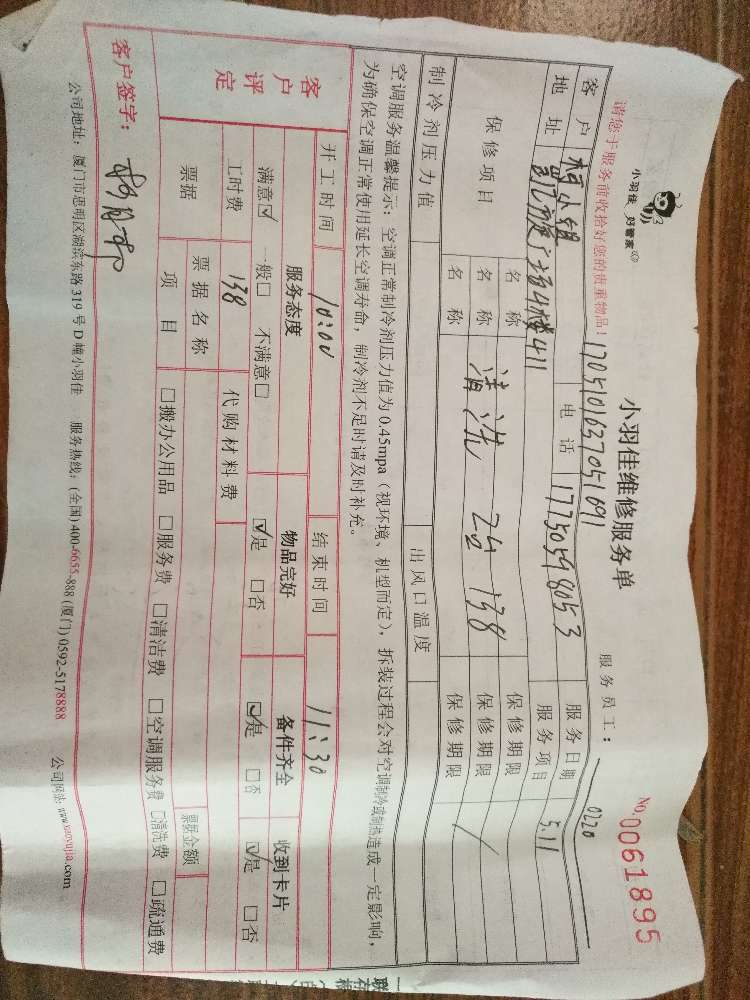 小羽佳 好管家
小羽佳维修服务单
No 0061895
请您于服务前收拾好您的贵重物品！
1705101637051691
服务员工：
0220
客户
小姐
电话
17750598053
服务日期
5.11
地址
凯旋广场4楼411
服务项目
保修项目
名称
保修期限
名称
清洗 2台 138
保修期限
名称
保修期限
制冷剂压力值
出风口温度
空调服务温馨提示：空调正常制冷剂压力值为0.45mpa（视环境、机型而定），拆装过程会对空调制冷或制热造成一定影响，
为确保空调正常使用延长空调寿命，制冷剂不足时请及时补充。
开工时间
10:00
结束时间
11:30
客户评定
服务态度
物品完好
备件齐全
收到卡片
满意☑ 一般□ 不满意□
☑是 □否
☑是 □否
☑是 □否
工时费
138
代购材料费
票据
票据名称
票据金额
项目
□搬办公用品 □服务费 □清洁费 □空调服务费 □清洗费 □疏通费
客户签字：
公司地址：厦门市思明区湖滨东路319号D幢小羽佳 服务热线：(全国)400-6655-888 (厦门)0592-5178888 公司网址：www.xiaoyujia.com